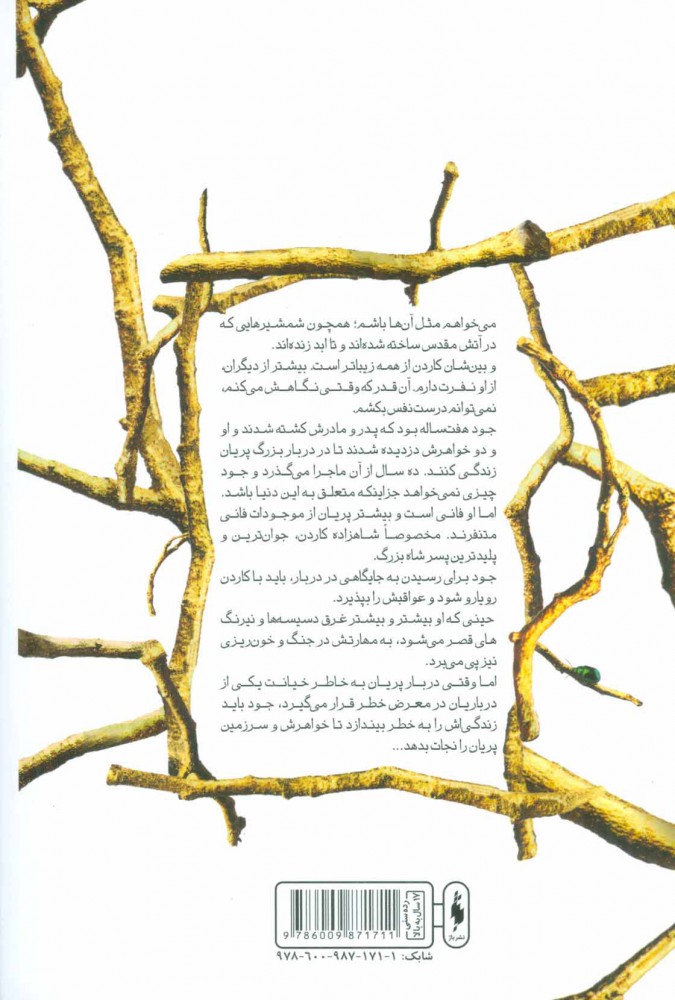 می‌خواهم مثل آن‌ها باشم؛ همچون شمشیرهایی که
در آتش مقدس ساخته شده‌اند و تا ابد زنده‌اند.
و بین‌شان کاردن از همه زیباتر است. بیشتر از دیگران،
از او نفرت دارم. آن قدر که وقتی نگاهش می‌کنم،
نمی‌توانم درست نفس بکشم.
جود هفت‌ساله بود که پدر و مادرش کشته شدند و او
و دو خواهرش دزدیده شدند تا در دربار بزرگ پریان
زندگی کنند. ده سال از آن ماجرا می‌گذرد و جود
چیزی نمی‌خواهد جز اینکه متعلق به این دنیا باشد.
اما او فانی است و بیشتر پریان از موجودات فانی
متنفرند. مخصوصاً شاهزاده کاردن، جوان‌ترین و
پلیدترین پسر شاه بزرگ.
جود برای رسیدن به جایگاهی در دربار، باید با کاردن
رویارو شود و عواقبش را بپذیرد.
حینی که او بیشتر و بیشتر غرق دسیسه‌ها و نیرنگ
های قصر می‌شود، به مهارتش در جنگ و خون‌ریزی
نیز پی می‌برد.
اما وقتی دربار پریان به خاطر خیانت یکی از
درباریان در معرض خطر قرار می‌گیرد، جود باید
زندگی‌اش را به خطر بیندازد تا خواهرش و سرزمین
پریان را نجات بدهد...
رده سنی
۱۷ سال به بالا
نشر باژ
9 786009 871711
شابک: ۱-۱۷۱-۹۸۷-۶۰۰-۹۷۸